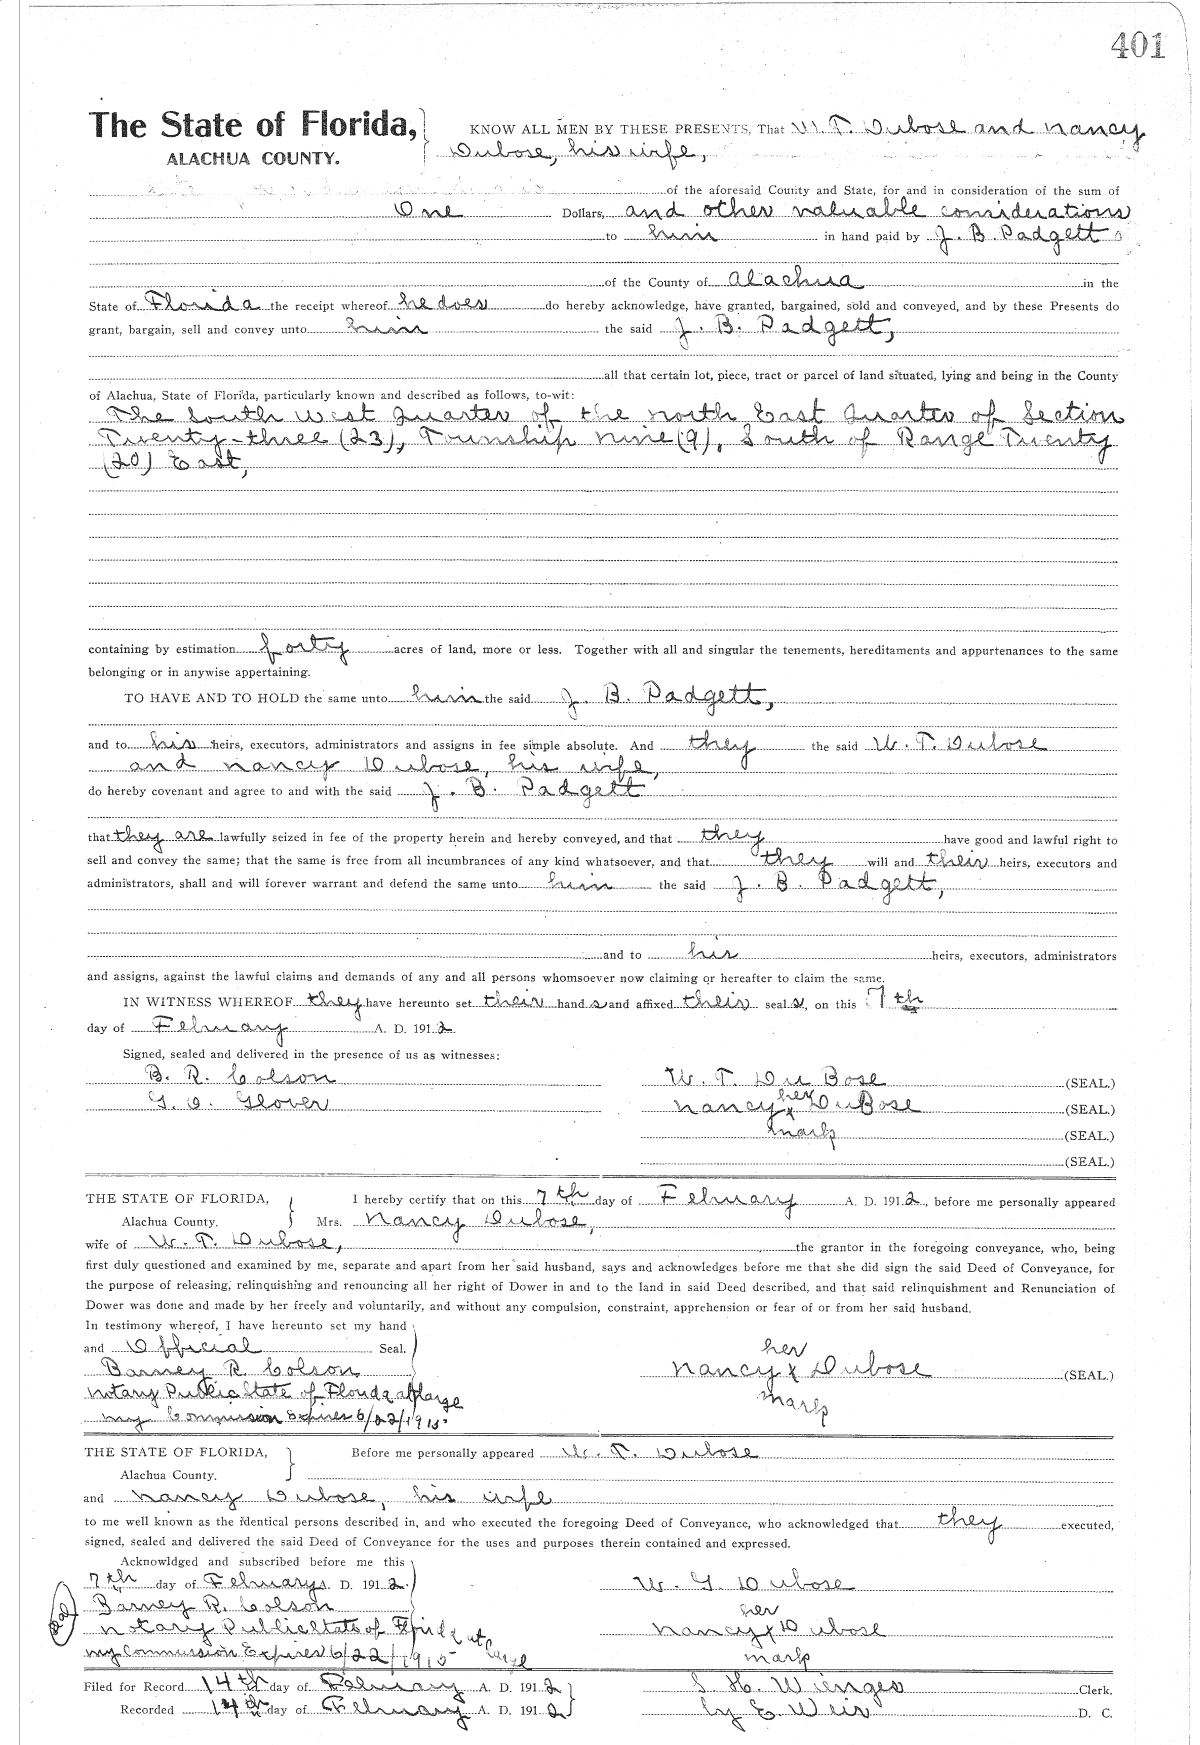 401
The State of Florida, KNOW ALL MEN BY THESE PRESENTS, That W. T. Dubose and Nancy
ALACHUA COUNTY. Dubose, his wife,
of the aforesaid County and State, for and in consideration of the sum of
One Dollars, and other valuable considerations
to him in hand paid by J. B. Padgett
of the County of Alachua in the
State of Florida the receipt whereof he does do hereby acknowledge, have granted, bargained, sold and conveyed, and by these Presents do
grant, bargain, sell and convey unto him the said J. B. Padgett,
all that certain lot, piece, tract or parcel of land situated, lying and being in the County
of Alachua, State of Florida, particularly known and described as follows, to-wit:
The South West Quarter of the North East Quarter of Section
Twenty-three (23), Township Nine (9), South of Range Twenty
(20) East,
containing by estimation forty acres of land, more or less. Together with all and singular the tenements, hereditaments and appurtenances to the same
belonging or in anywise appertaining.
TO HAVE AND TO HOLD the same unto him the said J. B. Padgett,
and to his heirs, executors, administrators and assigns in fee simple absolute. And they the said W. T. Dubose
and Nancy Dubose, his wife,
do hereby covenant and agree to and with the said J. B. Padgett
that they are lawfully seized in fee of the property herein and hereby conveyed, and that they have good and lawful right to
sell and convey the same; that the same is free from all incumbrances of any kind whatsoever, and that they will and their heirs, executors and
administrators, shall and will forever warrant and defend the same unto him the said J. B. Padgett,
and to his heirs, executors, administrators
and assigns, against the lawful claims and demands of any and all persons whomsoever now claiming or hereafter to claim the same.
IN WITNESS WHEREOF they have hereunto set their hand s and affixed their seal s, on this 7th
day of February A. D. 1912
Signed, sealed and delivered in the presence of us as witnesses:
B. R. Colson W. T. DuBose (SEAL.)
G. O. Glover Nancy her x DuBose (SEAL.)
mark (SEAL.)
(SEAL.)
THE STATE OF FLORIDA, I hereby certify that on this 7th day of February A. D. 1912, before me personally appeared
Alachua County. Mrs. Nancy Dubose,
wife of W. T. Dubose, the grantor in the foregoing conveyance, who, being
first duly questioned and examined by me, separate and apart from her said husband, says and acknowledges before me that she did sign the said Deed of Conveyance, for
the purpose of releasing, relinquishing and renouncing all her right of Dower in and to the land in said Deed described, and that said relinquishment and Renunciation of
Dower was done and made by her freely and voluntarily, and without any compulsion, constraint, apprehension or fear of or from her said husband.
In testimony whereof, I have hereunto set my hand
and Official Seal. her
Barney R. Colson Nancy x Dubose (SEAL.)
Notary Public State of Florida at Large mark
My Commission Expires 6/22/1915
THE STATE OF FLORIDA, Before me personally appeared W. T. Dubose
Alachua County.
and Nancy Dubose, his wife
to me well known as the identical persons described in, and who executed the foregoing Deed of Conveyance, who acknowledged that they executed,
signed, sealed and delivered the said Deed of Conveyance for the uses and purposes therein contained and expressed.
Acknowldged and subscribed before me this
7th day of February A. D. 1912 W. G. Dubose
Barney R. Colson her
Notary Public State of Florida at Large Nancy x Dubose
My Commission Expires 6/22/1915 mark
Filed for Record 14th day of February A. D. 1912 S. H. Wienges Clerk.
Recorded 14th day of February A. D. 1912 by E Weir D. C.